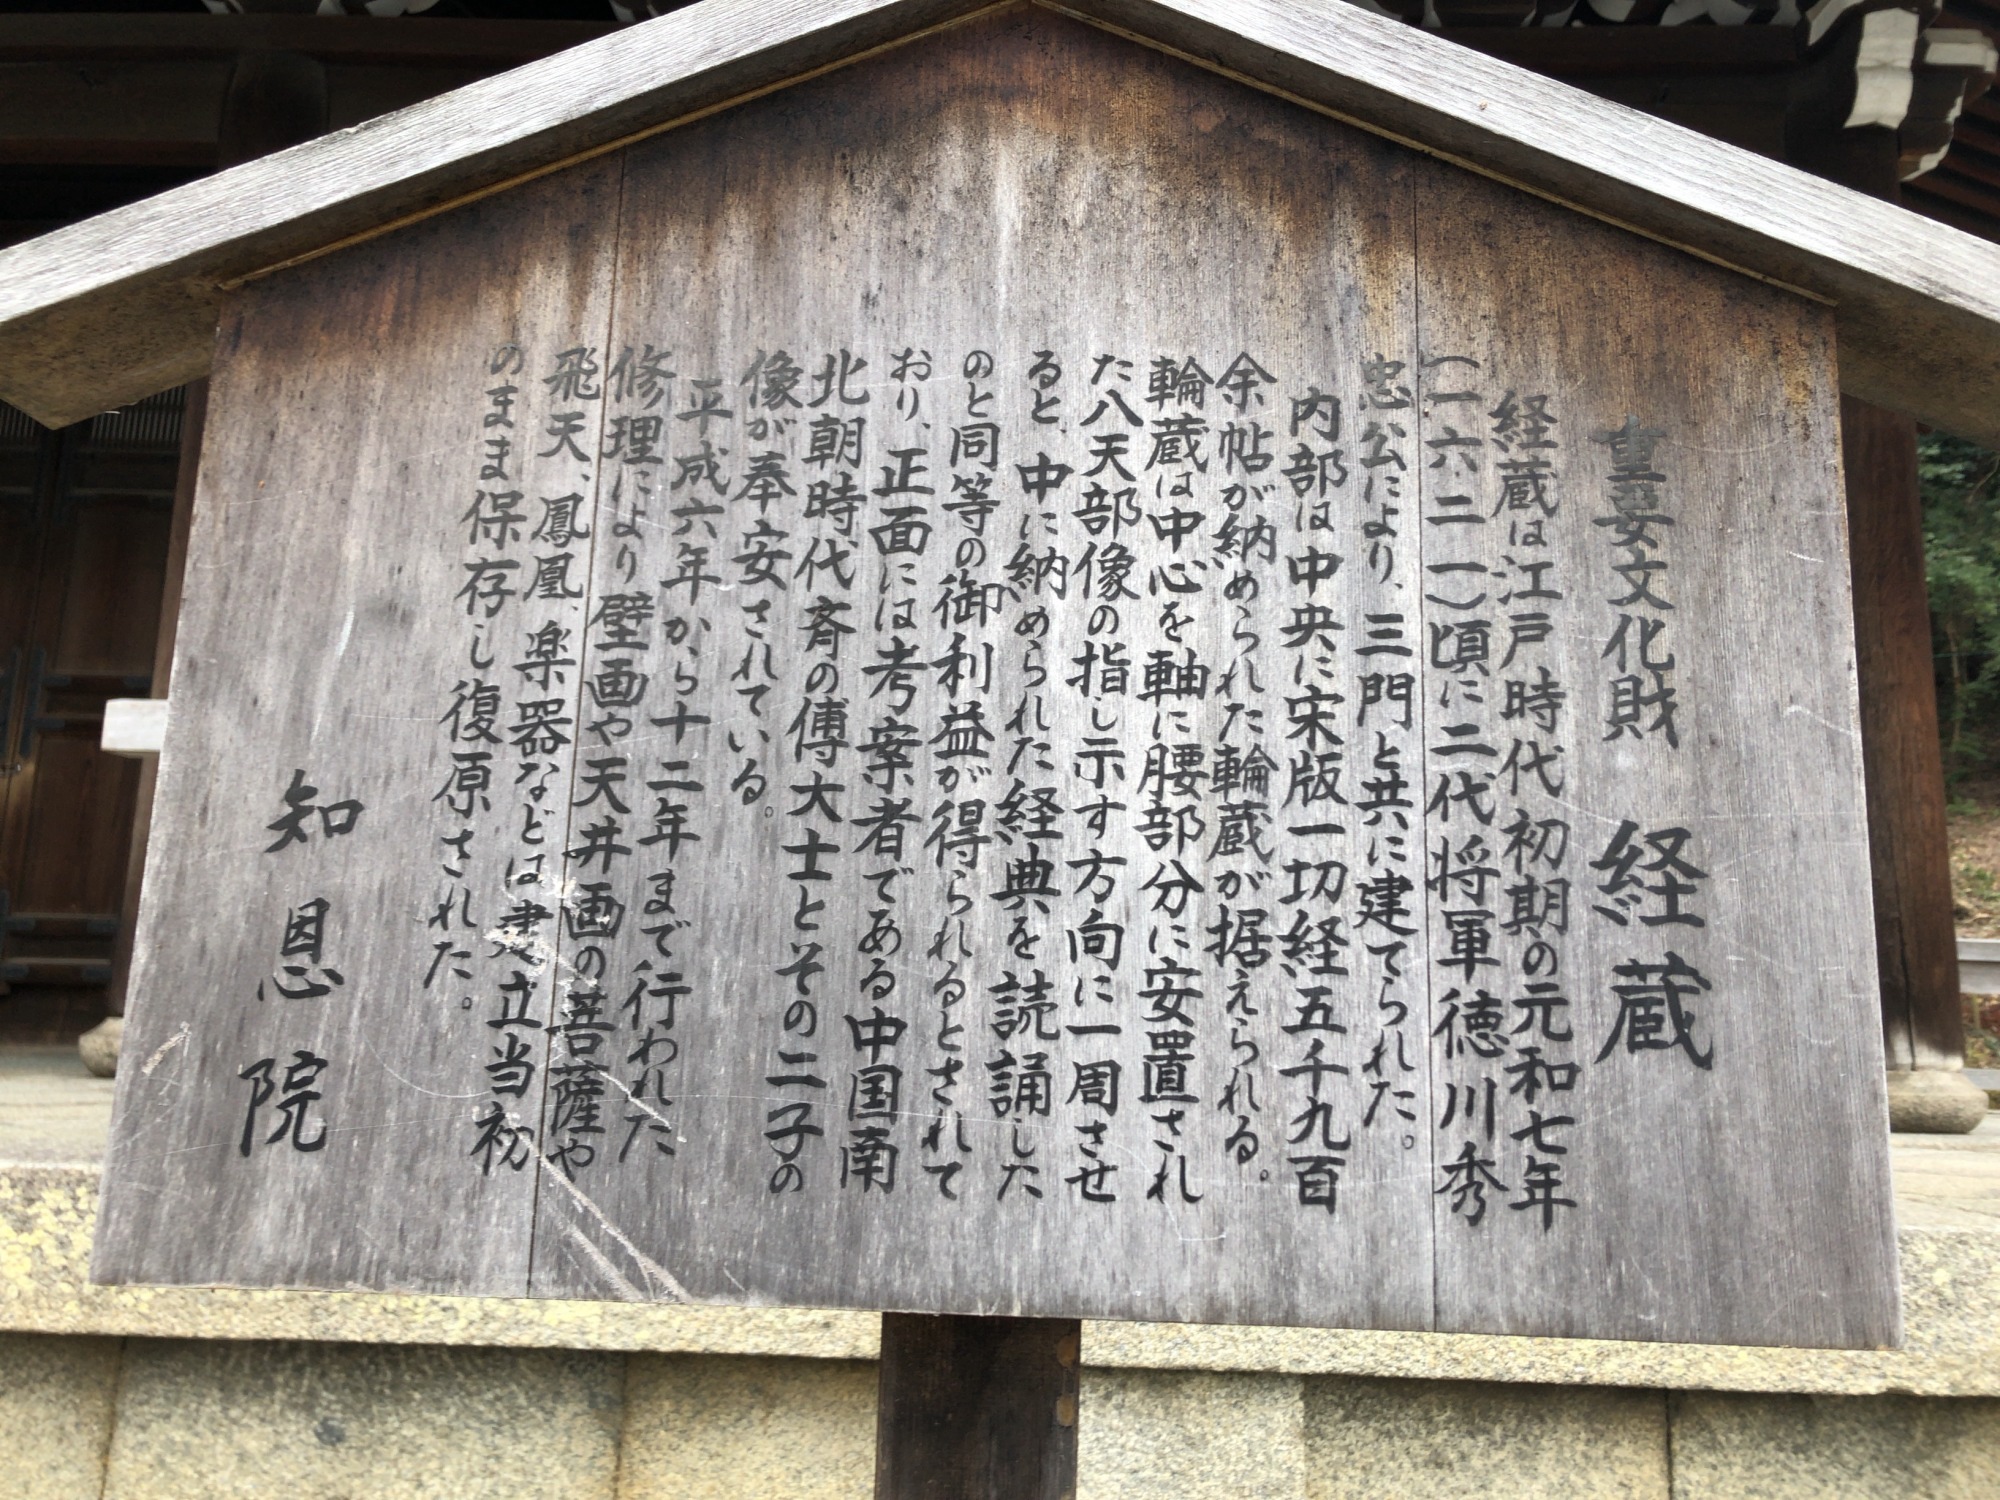 重要文化財 経蔵
経蔵は江戸時代初期の元和七年
(一六二一)頃に二代将軍徳川秀
忠公により、三門と共に建てられた。
内部は中央に宋版一切経五千九百
余帖が納められた輪蔵が据えられる。
輪蔵は中心を軸に腰部分に安置され
た八天部像の指し示す方向に一周させ
ると、中に納められた経典を読誦した
のと同等の御利益が得られるとされて
おり、正面には考案者である中国南
北朝時代斉の傅大士とその二子の
像が奉安されている。
平成六年から十二年まで行われた
修理により壁画や天井画の菩薩や
飛天、鳳凰、楽器などは建立当初
のまま保存し復原された。
知恩院